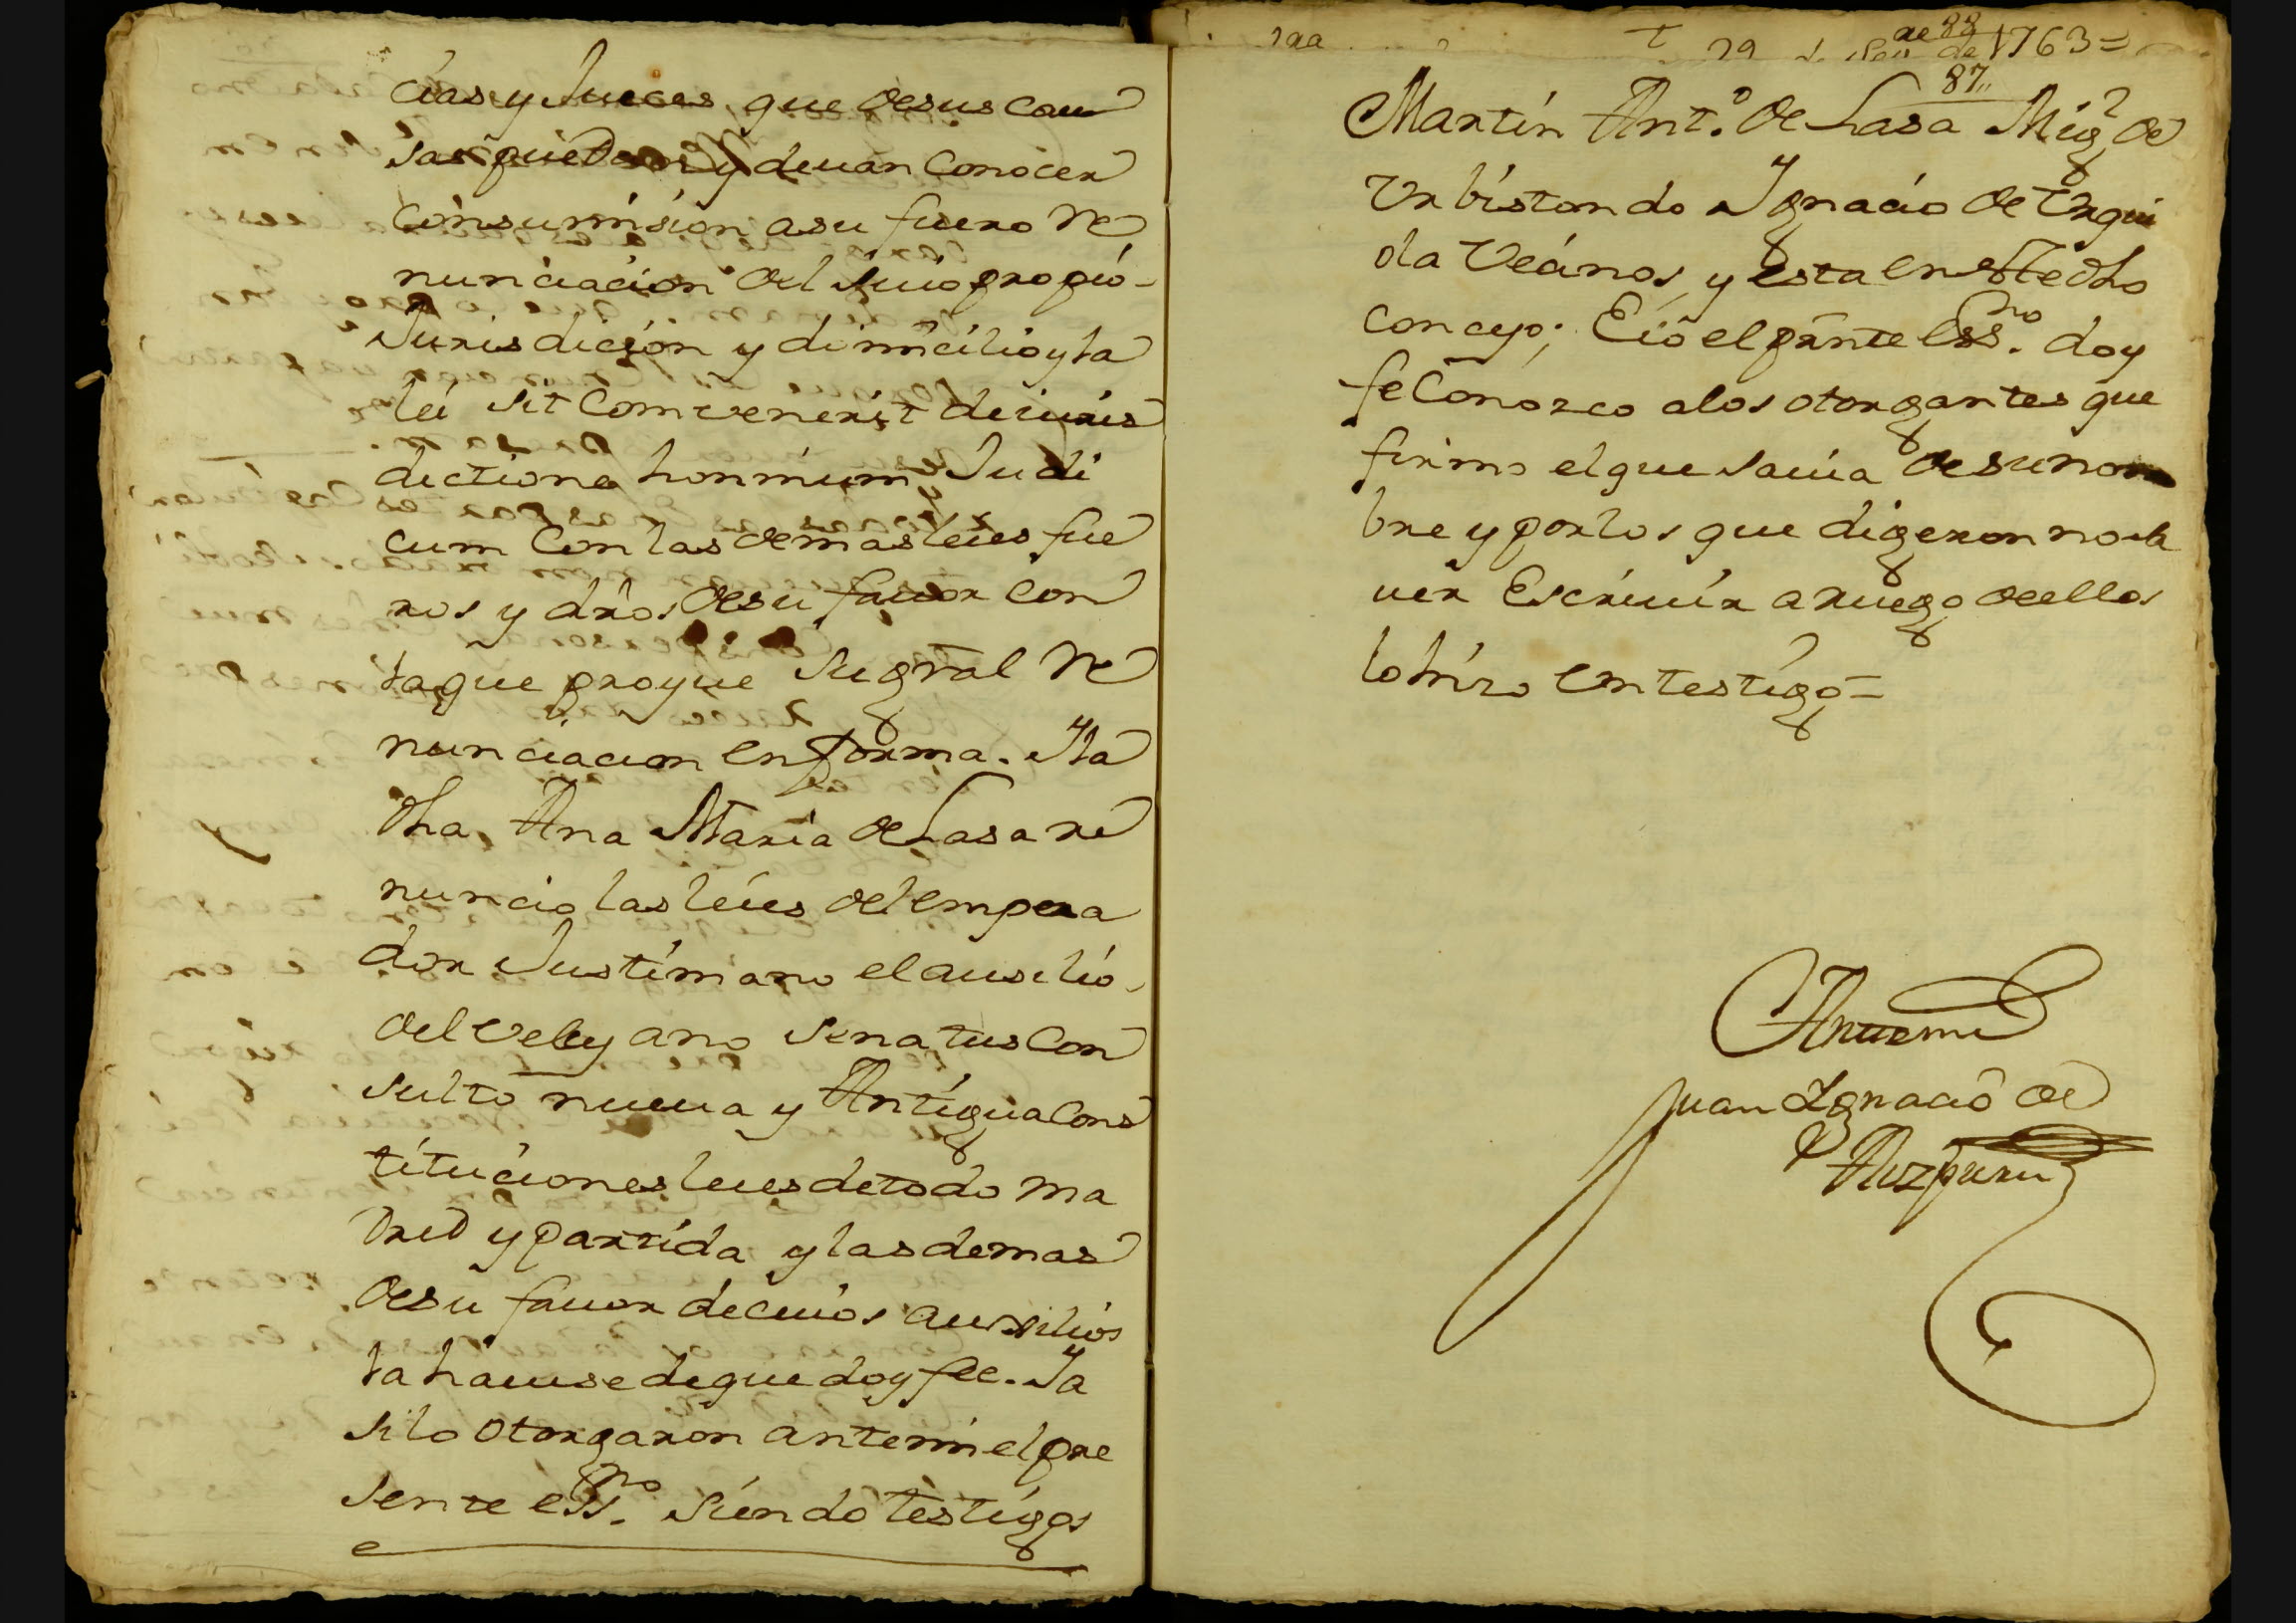 cias y Jueces que de sus cau
sas puedan y deuan Conocer
Consumision a su fuero Re
nunciacion del suio propio
Jurisdicion y dimicilio y la
lei sit Comvenerit de iuris
dictione honmium Judi
cum Con las demas leies fue
ros y dros de su fauor con
la que proyue su gral Re
nunciacion en forma. Y la
dha Ana Maria de Lasa re
nuncio las leies del empera
dor Justiniano el ausilio
del Veleyano Senatus Con
sulto nueua y Antigua Cons
tituciones leies de todo Ma
drid y partida y las demas
de su fauor de cuios auxilios
la hauise de que doy fee. Y a
si lo otorgaron ante mi el pre
sente essno. siendo testigos
de 1763=
88
87
Martin Anto. de Lasa Migl de
Vrbistondo Ignacio de Vrgui
ola Vecinos y esta en este dho
conceyo; E io el pnte Essno. doy
fe Conozco a los otorgantes que
firmo el que sauia de su nom
bre y por los que digeron no sa
uer Escriuir a ruego de ellos
lo hizo un testigo=
Ante mi
Juan Ignacio de
Aizpuru